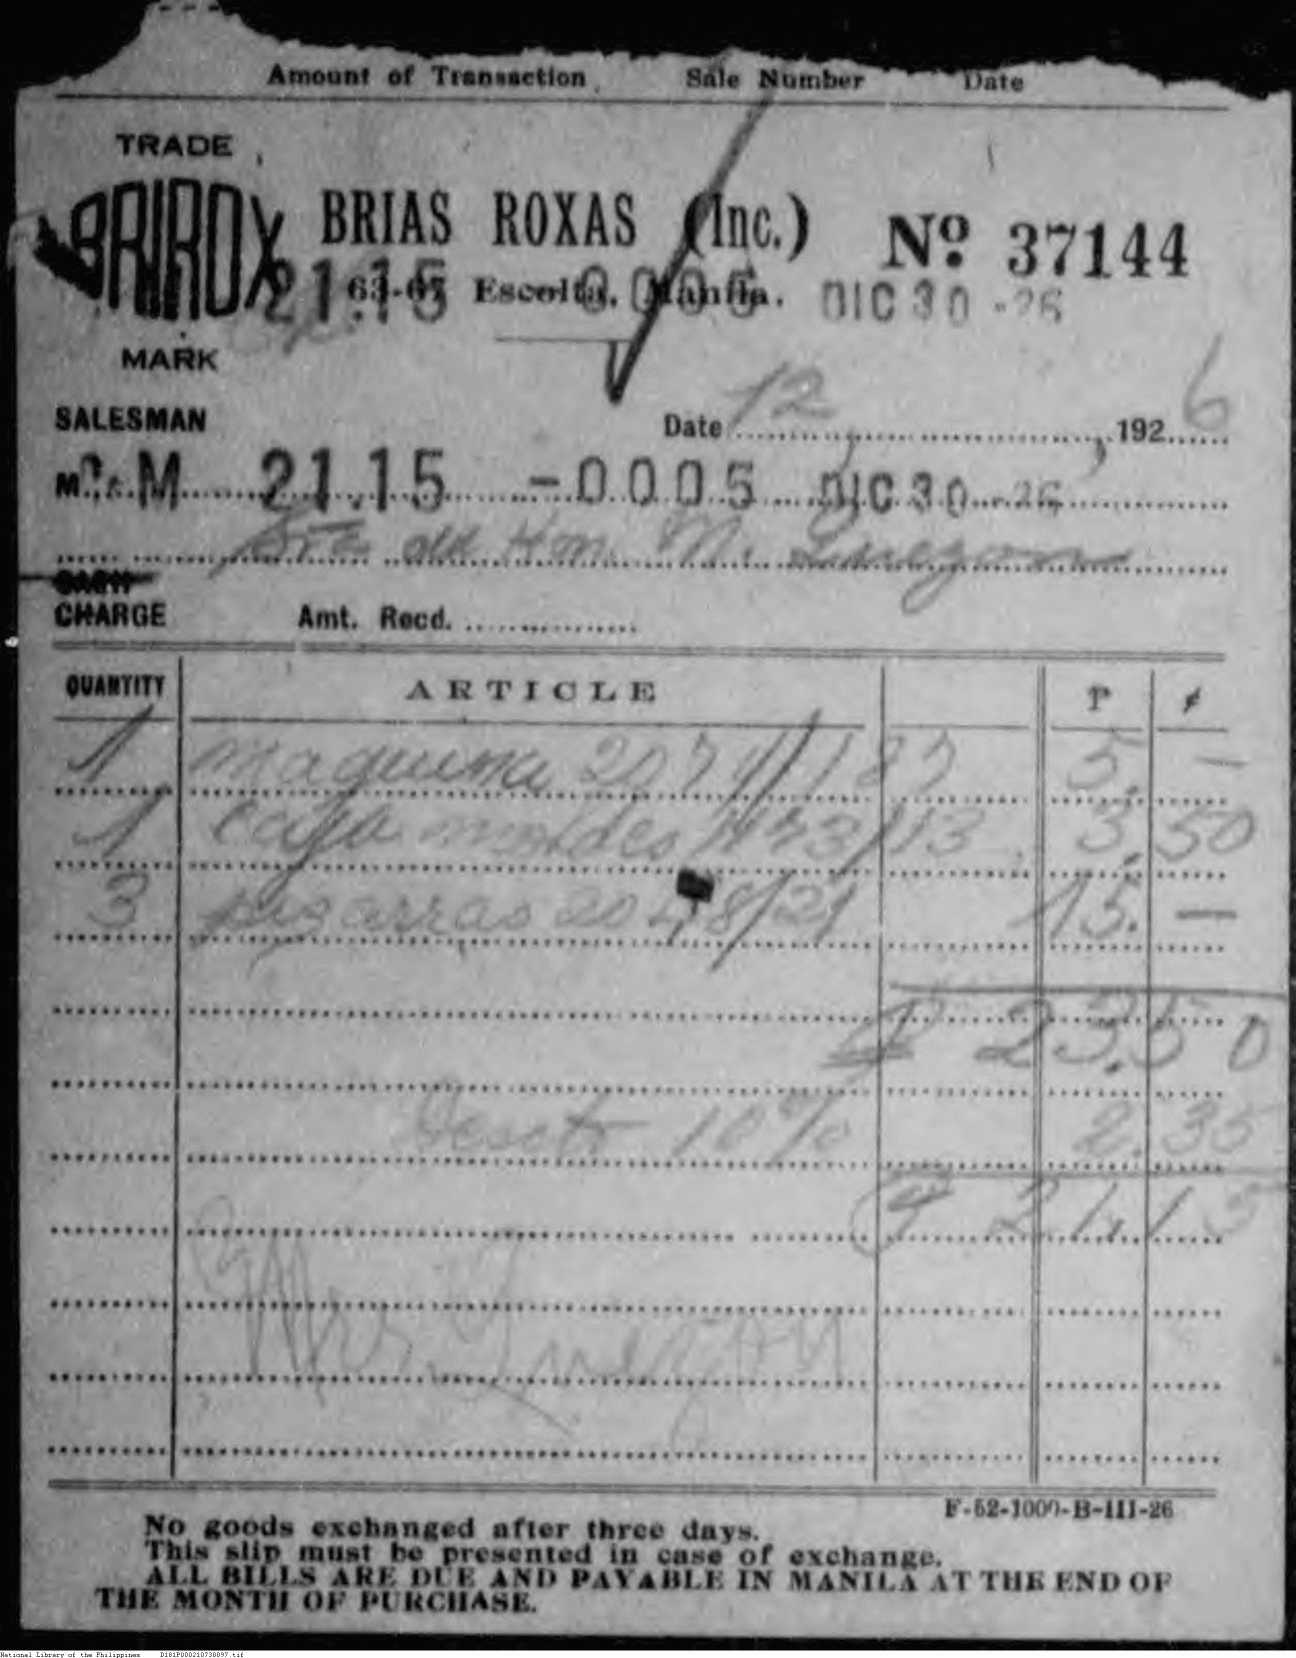 Amount of Transaction Sale Number Date
TRADE
BRIROX BRIAS ROXAS (Inc.) Nº 37144
63-67 Escolta, Manila.
21.15 0005 DIC 30 -26
MARK
SALESMAN
Date 12, 1926
M 21.15 -0005 DIC 30 -26
Sra del Hon. M. Quezon
CASH
CHARGE Amt. Recd.
QUANTITY ARTICLE P ¢
1 maquina 2071/187 5. —
1 caja moldes 1423/113 3.50
3 pizarras 2048/21 15. —
₱ 23.50
Descto 10% 2.35
₱ 21.15
Mrs. Quezon
F-52-1000-B-III-26
No goods exchanged after three days.
This slip must be presented in case of exchange.
ALL BILLS ARE DUE AND PAYABLE IN MANILA AT THE END OF
THE MONTH OF PURCHASE.
National Library of the Philippines D181P000210738097.tif